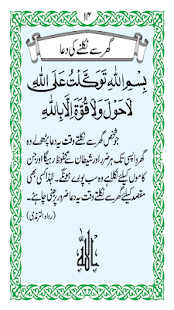 ۱۴
گھر سے نکلنے کی دعا
بِسْمِ اللّٰهِ تَوَكَّلْتُ عَلَى اللّٰهِ
لَا حَوْلَ وَلَا قُوَّةَ اِلَّا بِاللّٰهِ
جو شخص گھر سے نکلتے وقت یہ دعا پڑھے وہ
گھر واپسی تک ہر ضرر اور شیطان سے محفوظ رہیگا اور جن
کاموں کیلئے نکلا ہے وہ سب پورے ہونگے۔ لہٰذا کسی بھی
مقصد کیلئے گھر سے نکلتے وقت یہ دعا ضرور پڑھنی چاہئے۔
(رواہ الترمذی)